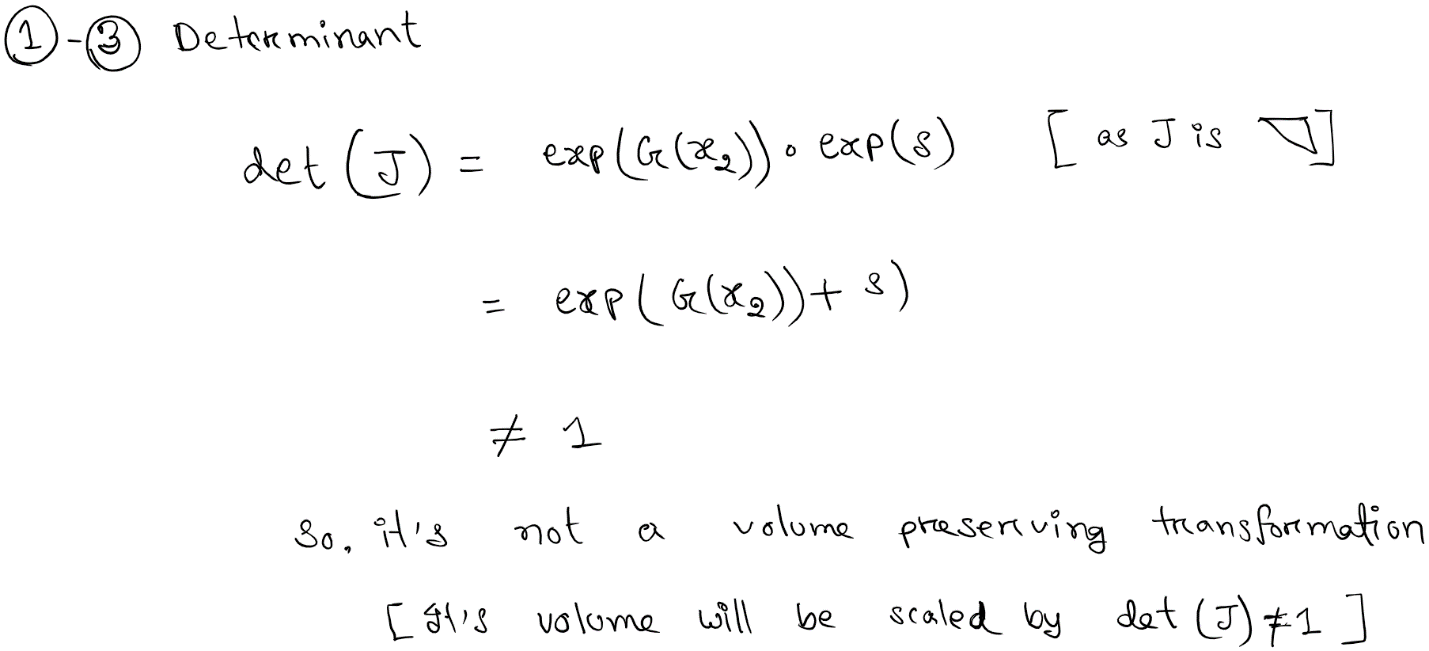 ①-③ Determinant
det (J) = exp(G(x₂)) · exp(s) [ as J is ◹]
= exp( G(x₂))+ s)
≠ 1
So, it's not a volume preserving transformation
[ It's volume will be scaled by det (J) ≠ 1 ]